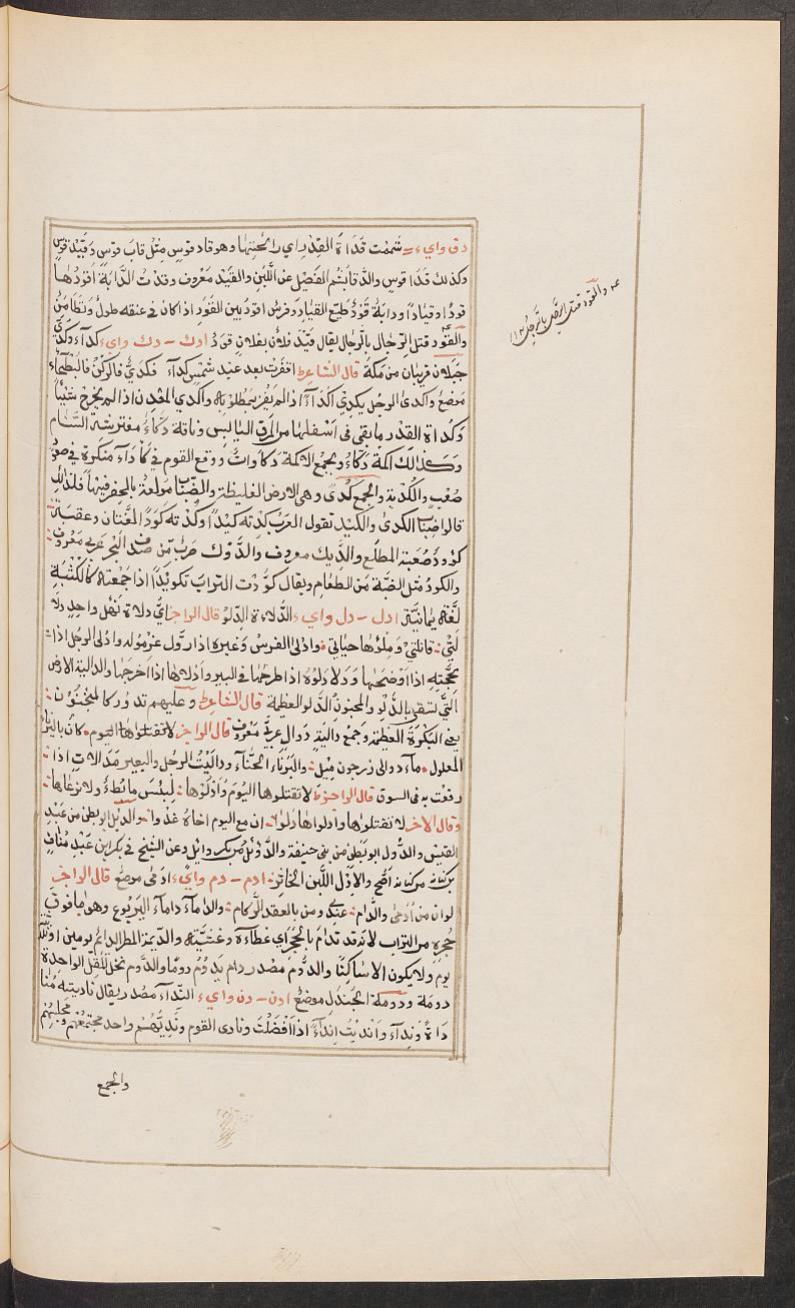 دق واي، شممت قداة القدر اي رائحتها وهو قاد قوس مثل قاب قوس وقيد قوس
وكذلك قدا قوس والد قابنتم الفصل عن اللبن والقيد معروف وقدت الدابة اقودها
قودا وقيادا ودابة قوود طيع القياد وفرس اقود بين القود اذا كان في عنقه طول وتطامن
والقود قتل الرجال بالرجال يقال قيد فلان بفلان قود ادك - دك واي، كداء وكدي
جبلان قريبان من مكة قال الشاعر اقفرت بعد عبد شمس كداء فكدي فالركن فالبطحاء
موضع واكدى الرجل يكدي اكداء اذا لم يفز بمطلوبه واكدي المعدن اذا لم يخرج شيئا
وكداة القدر ما بقي في اسفلها من المرق اليابس وناقة دكاء مفترشة السنام
وكذلك اكمة دكاء ويجمع الاكمة دكاوات ووقع القوم في كاداء منكرة في صعود
صعب والكدية والجمع كدى وهي الارض الغليظة والضباب مولعة بالحفر فيها فلذلك
قالوا ضباب الكدى والكيد تقول العرب كدته كيدا وكدته كودا لغتان وعقبة
كوود صعبة المطلع والديك معروف والدوك ضرب من صدف البحر عربي معروف
والكود مثل الضبة من الطعام ويقال كودت التراب تكويدا اذا جمعته كالكثبة
لغة يمانية ادل - دل واي، الدلاءة الدلو قال الراجز اي دلاة نهل واحد دلا
لتي قاتلتي وملؤها حياتي واذلى الفرس وغيره اذا رول غرموله وادلى الرجل اذا
بحجته اذا اوضحها ودلا دلوه اذا طرحها في البير وادلاها اذا اخرجها والدالية الارض
التي تسقى بالدلو والمجنون الدلو العظيمة قال الشاعر وعليهم تدور كالمنجنون
يعني البكرة العظيمة وجمع دالية دوال عربي معروف قال الراجز لا تقتلوا هااليوم كان بالير
المعلول ماء دوالي زرجون ميل واليرناء الحناء وداليت الرجل والبعير مدالات اذا
رفقت به في السوق قال الراجز لا تقتلوها اليوم وادلوها لبئس ما بطء ولا نرعاها
وقال الاخر لا تقتلوها وادلوها دلوا ان مع اليوم اخاه غدوا والديل ابو بطن من عبد
القيس والدول ابو بطن من بني حنيفة والدؤل من بكر وائل وعن الشيخ في بكر ابن عبد مناف
بن كنانة من كنانة افصح والادل اللبن الخاثر ادم - دم واي، ادمى موضع قال الراجز
لو ان من ادمى والدام عندي ومن بالعقد الركام والداماء داماء اليربوع وهو ما فوق
جحره من التراب لانه قد تدام بالجحر اي غطاه وغشيته والديمة المطر الدائم يومين او ثلثة
يوم ولا يكون الا ساكنا والدوم مصدر دام يدوم دوما والدوم نخل المقل الواحدة
دومة ودومة الجندل موضع ادن - دن واي، النداء مصدر يقال ناديته منا
داة ونداء واندیت انداء اذا افضلت ونادى القوم ونديهم واحد مجتمعهم ومجلسهم
والجمع
والقود قتل الرجل بالرجل